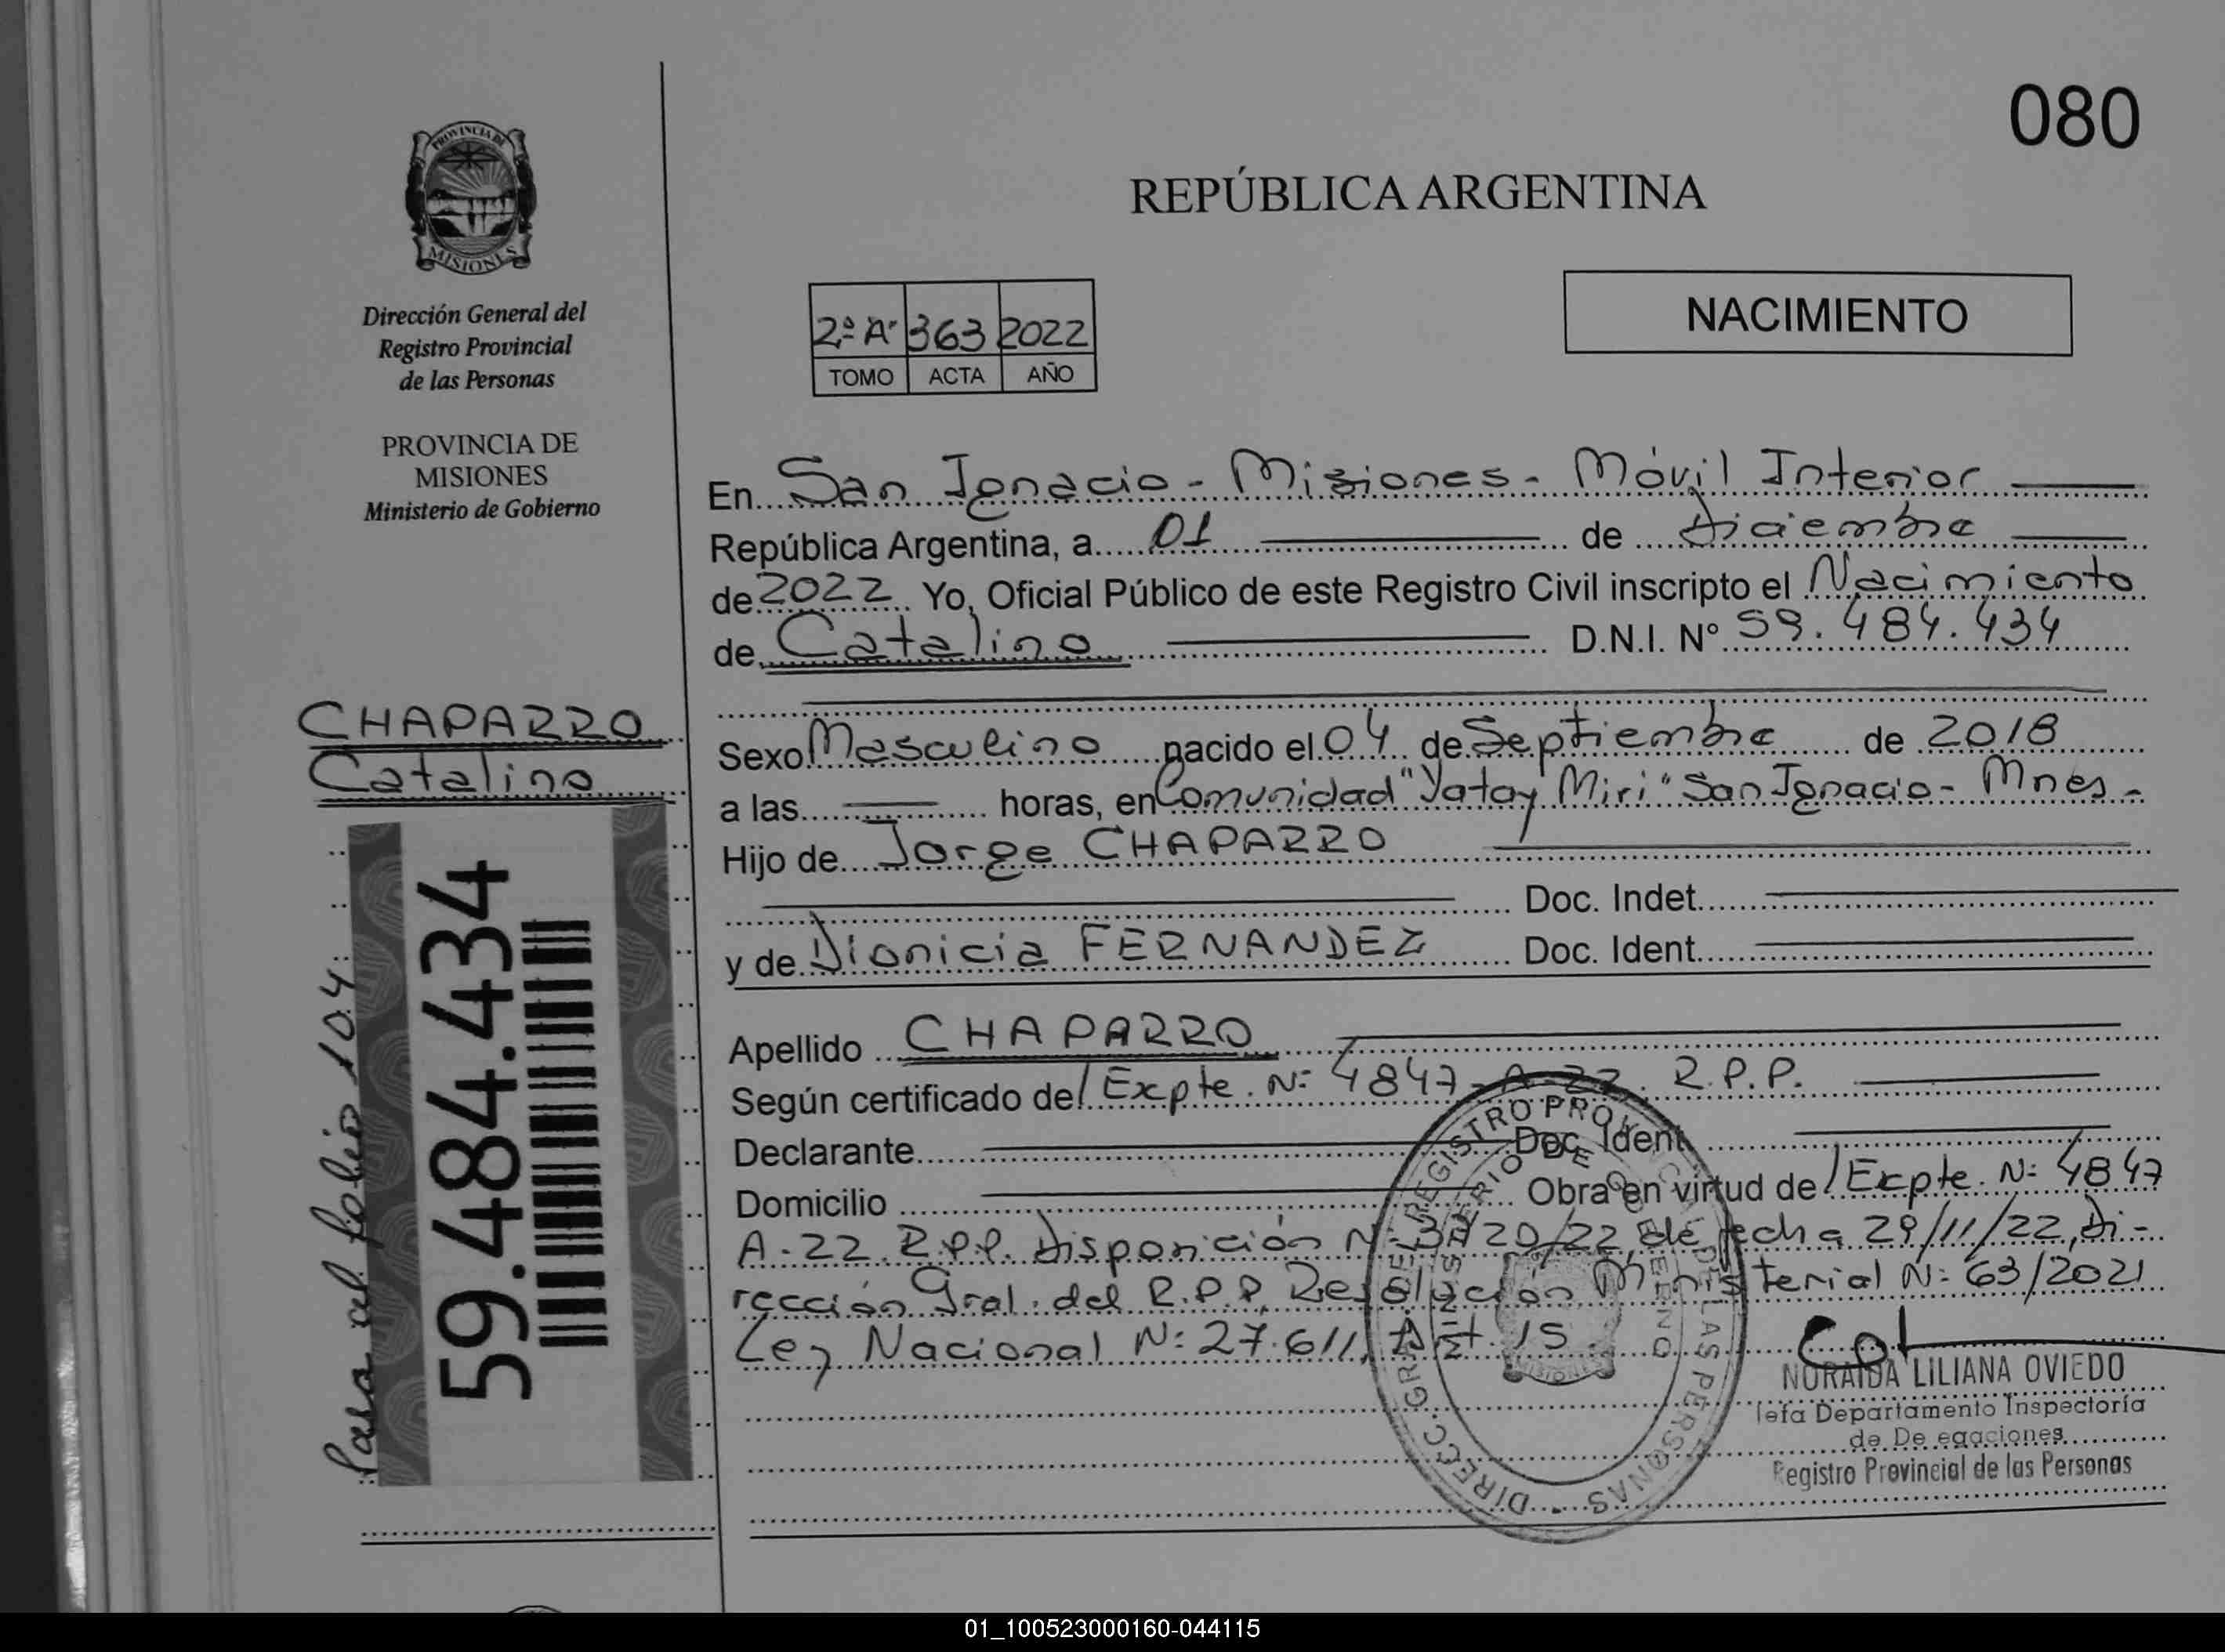 080
PROVINCIA DE
MISIONES
REPÚBLICA ARGENTINA
NACIMIENTO
2ª A. 363 2022
TOMO ACTA AÑO
Dirección General del
Registro Provincial
de las Personas
PROVINCIA DE
MISIONES
Ministerio de Gobierno
CHAPARRO
Catalino
59.484.434
Pasa al folio 104.
En San Ignacio - Misiones - Móvil Interior
República Argentina, a 01 de diciembre
de 2022 Yo, Oficial Público de este Registro Civil inscripto el Nacimiento
de Catalino D.N.I. Nº 59.484.434
Sexo Masculino nacido el 04 de Septiembre de 2018
a las horas, en Comunidad "Yatay Miri" San Ignacio - Mnes -
Hijo de Jorge CHAPARRO
Doc. Indet
y de Dionicia FERNANDEZ Doc. Ident
Apellido CHAPARRO
Según certificado de/ Expte. N: 4847-A-22. R.P.P.
Declarante Doc. Ident
Domicilio Obra en virtud de/ Expte. N: 4847
A-22 R.P.P. Disposición de fecha 29/11/22, Di-
rección Gral. del R.P.P. Resolución Ministerial N: 63/2021
Ley Nacional N: 27.611, Art. 15
DIRECC. GRAL. DEL REGISTRO PROVINCIAL DE LAS PERSONAS
MINISTERIO DE GOBIERNO
MISIONES
NORAIDA LILIANA OVIEDO
Jefa Departamento Inspectoría
de De egaciones
Registro Provincial de las Personas
01_100523000160-044115